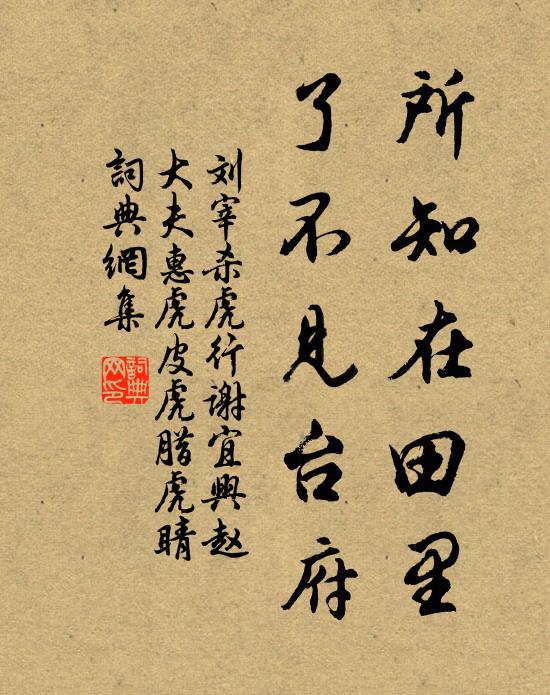 所知在田里
了不见台府
刘宰杀虎行谢宜興赵
大夫惠虎皮虎腊虎睛
詞典網集
詞典
网印